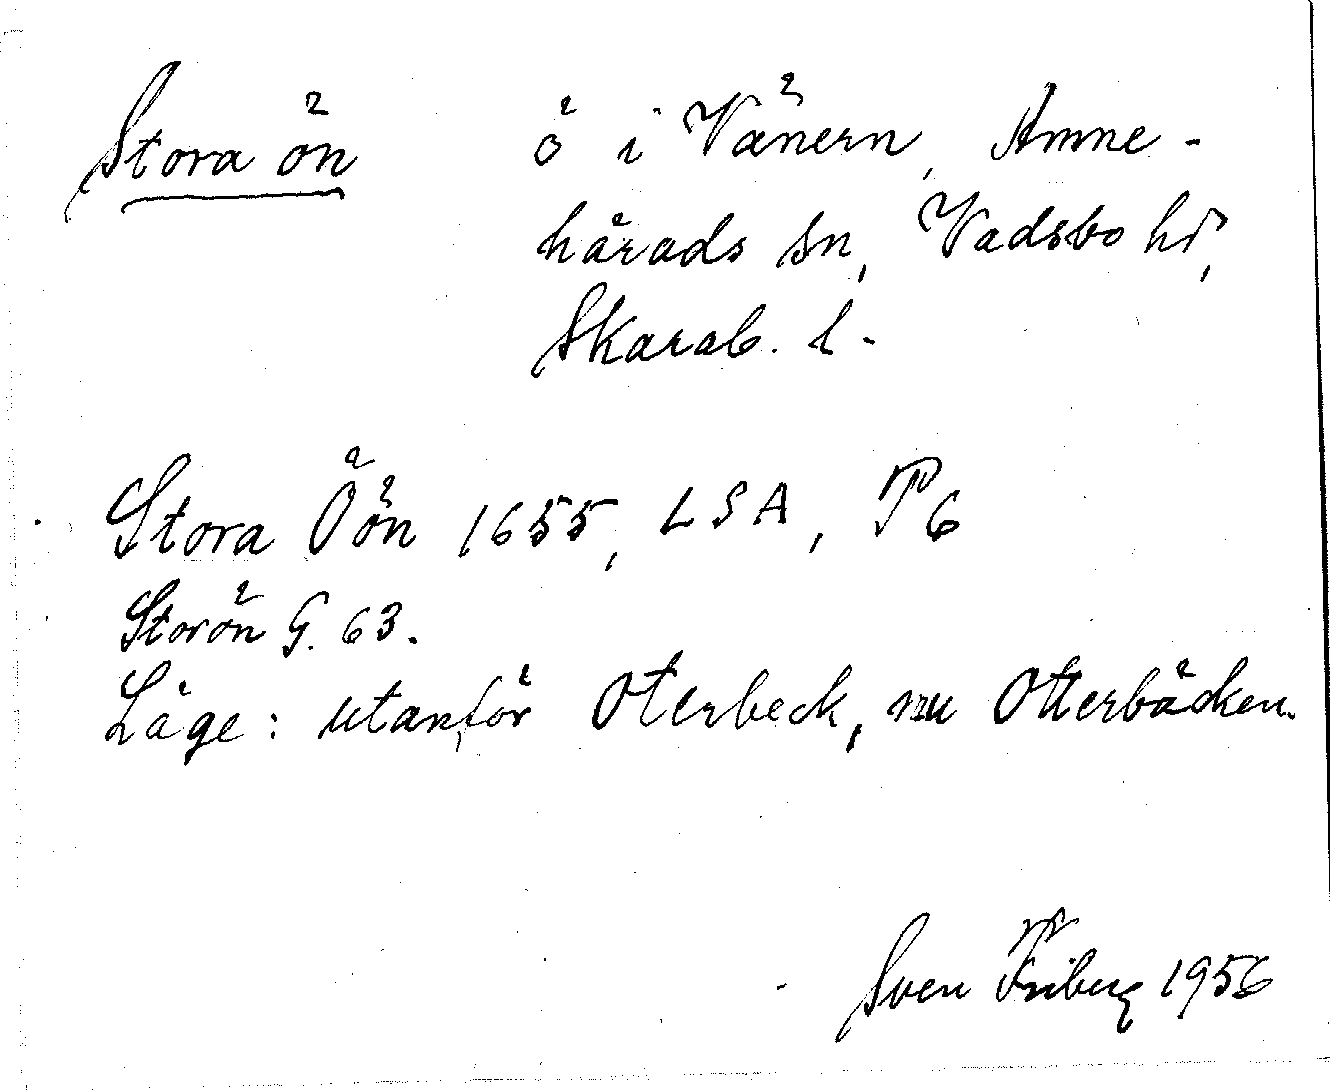 Stora ön ö i Vänern, Amne-
härads sn, Vadsbo hd,
Skarab. l.
Stora Öön 1655, LSA, P6
Storön G. 63.
Läge: utanför Oterbeck, nu Otterbäcken.
Sven Friberg 1956